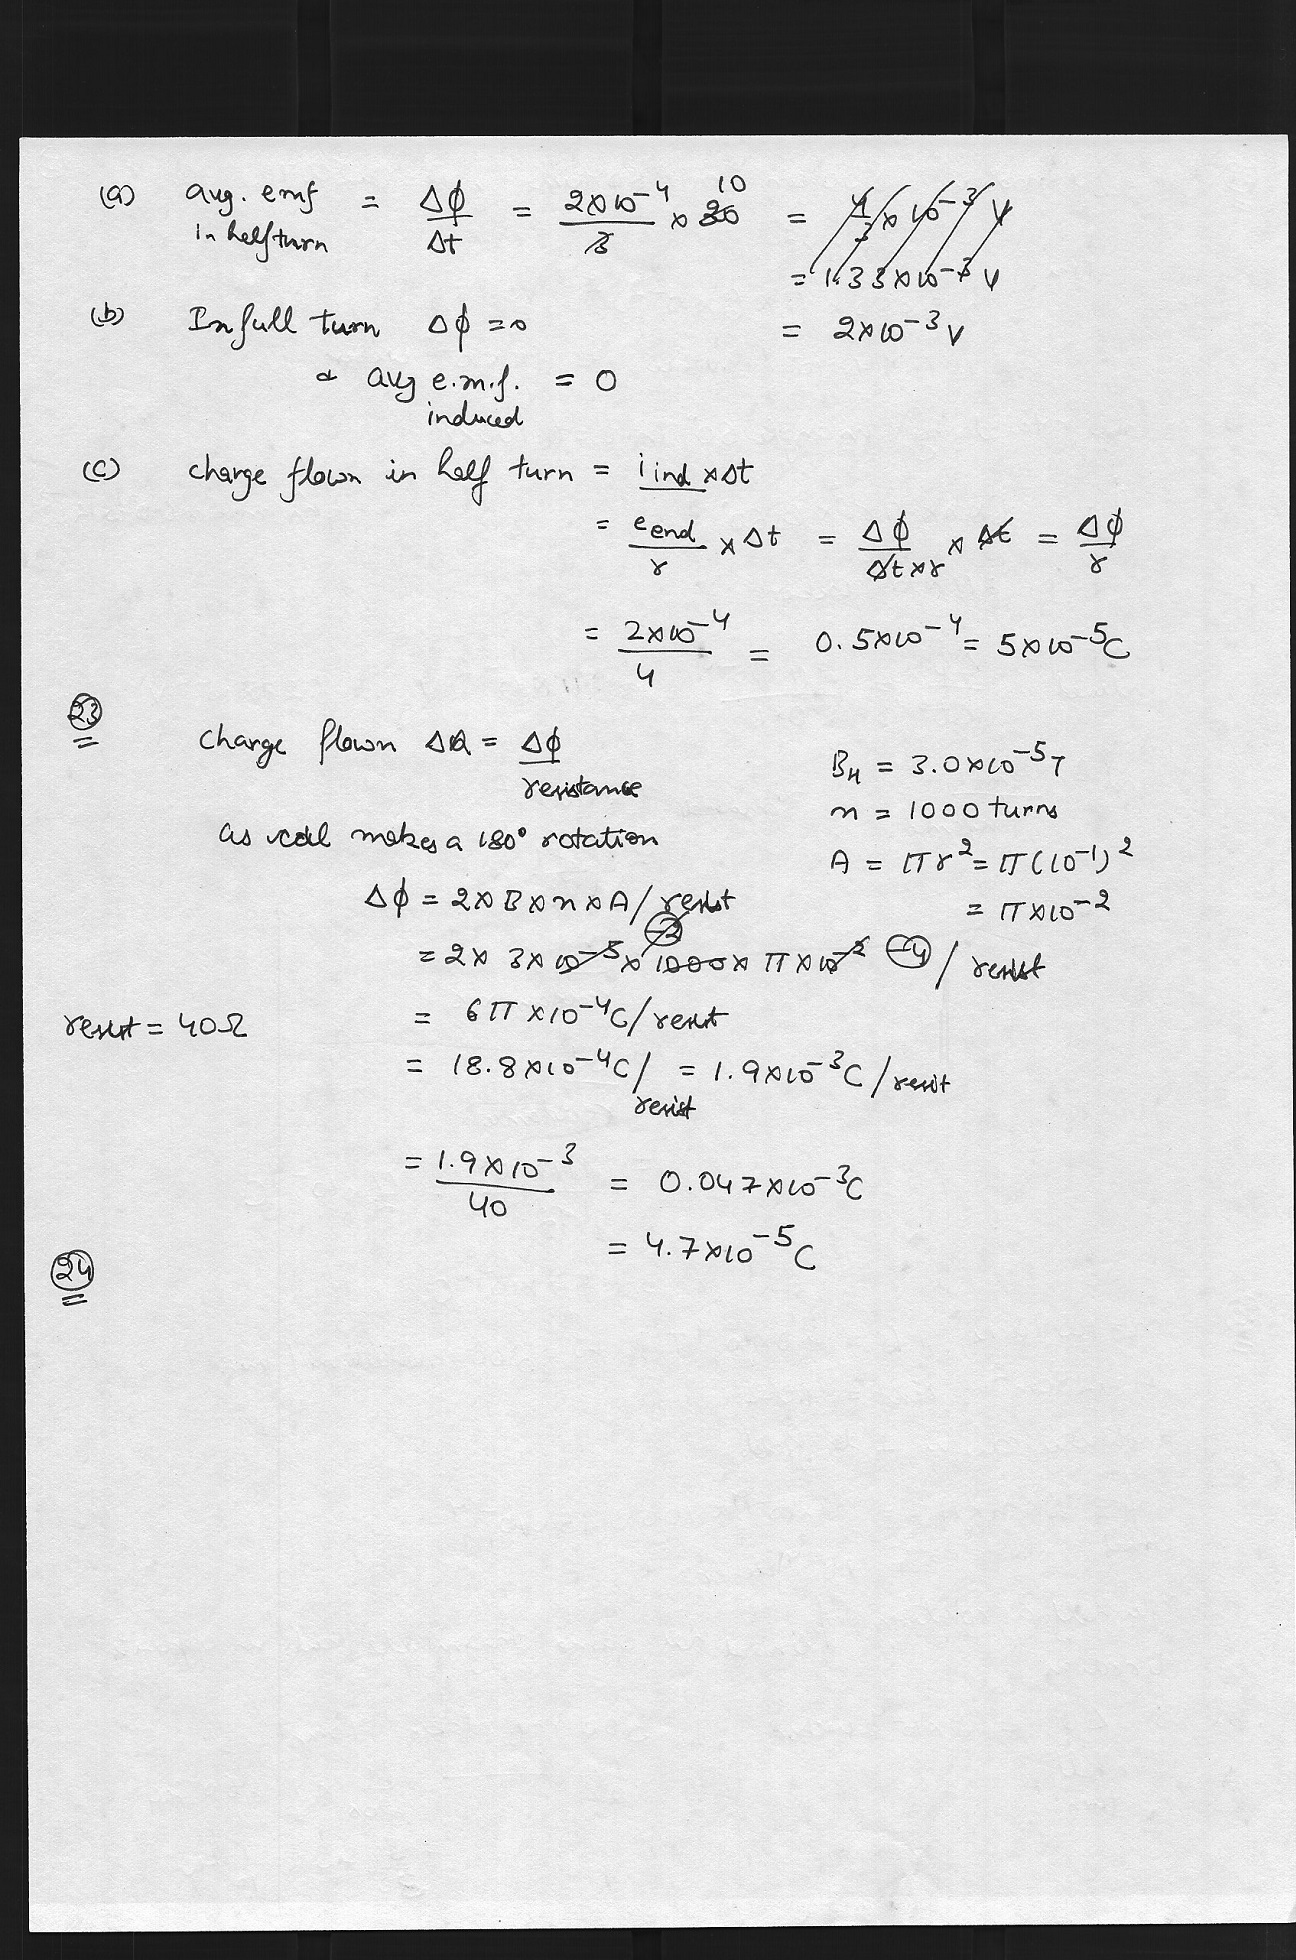 (a) avg. emf in half turn = Δϕ/Δt = 2×10⁻⁴/3 × 10 = 4/3 × 10⁻³ V
= 1.33×10⁻³ V
(b) In full turn Δϕ = 0 = 2×10⁻³ V
avg e.m.f. induced = 0
(c) charge flown in half turn = i ind × Δt
= e end/r × Δt = Δϕ/Δt×r × Δt = Δϕ/r
= 2×10⁻⁴/4 = 0.5×10⁻⁴ = 5×10⁻⁵C
23
charge flown ΔQ = Δϕ/resistance
B_H = 3.0×10⁻⁵T
n = 1000 turns
as coil makes a 180° rotation
A = πr² = π(10⁻¹)²
= π×10⁻²
Δϕ = 2×B×n×A/resist
= 2× 3×10⁻⁵ × 1000 × π×10⁻² -4 / resist
resist = 40Ω
= 6π×10⁻⁴C/resist
= 18.8×10⁻⁴C/resist = 1.9×10⁻³C/resist
= 1.9×10⁻³/40 = 0.047×10⁻³C
= 4.7×10⁻⁵C
24